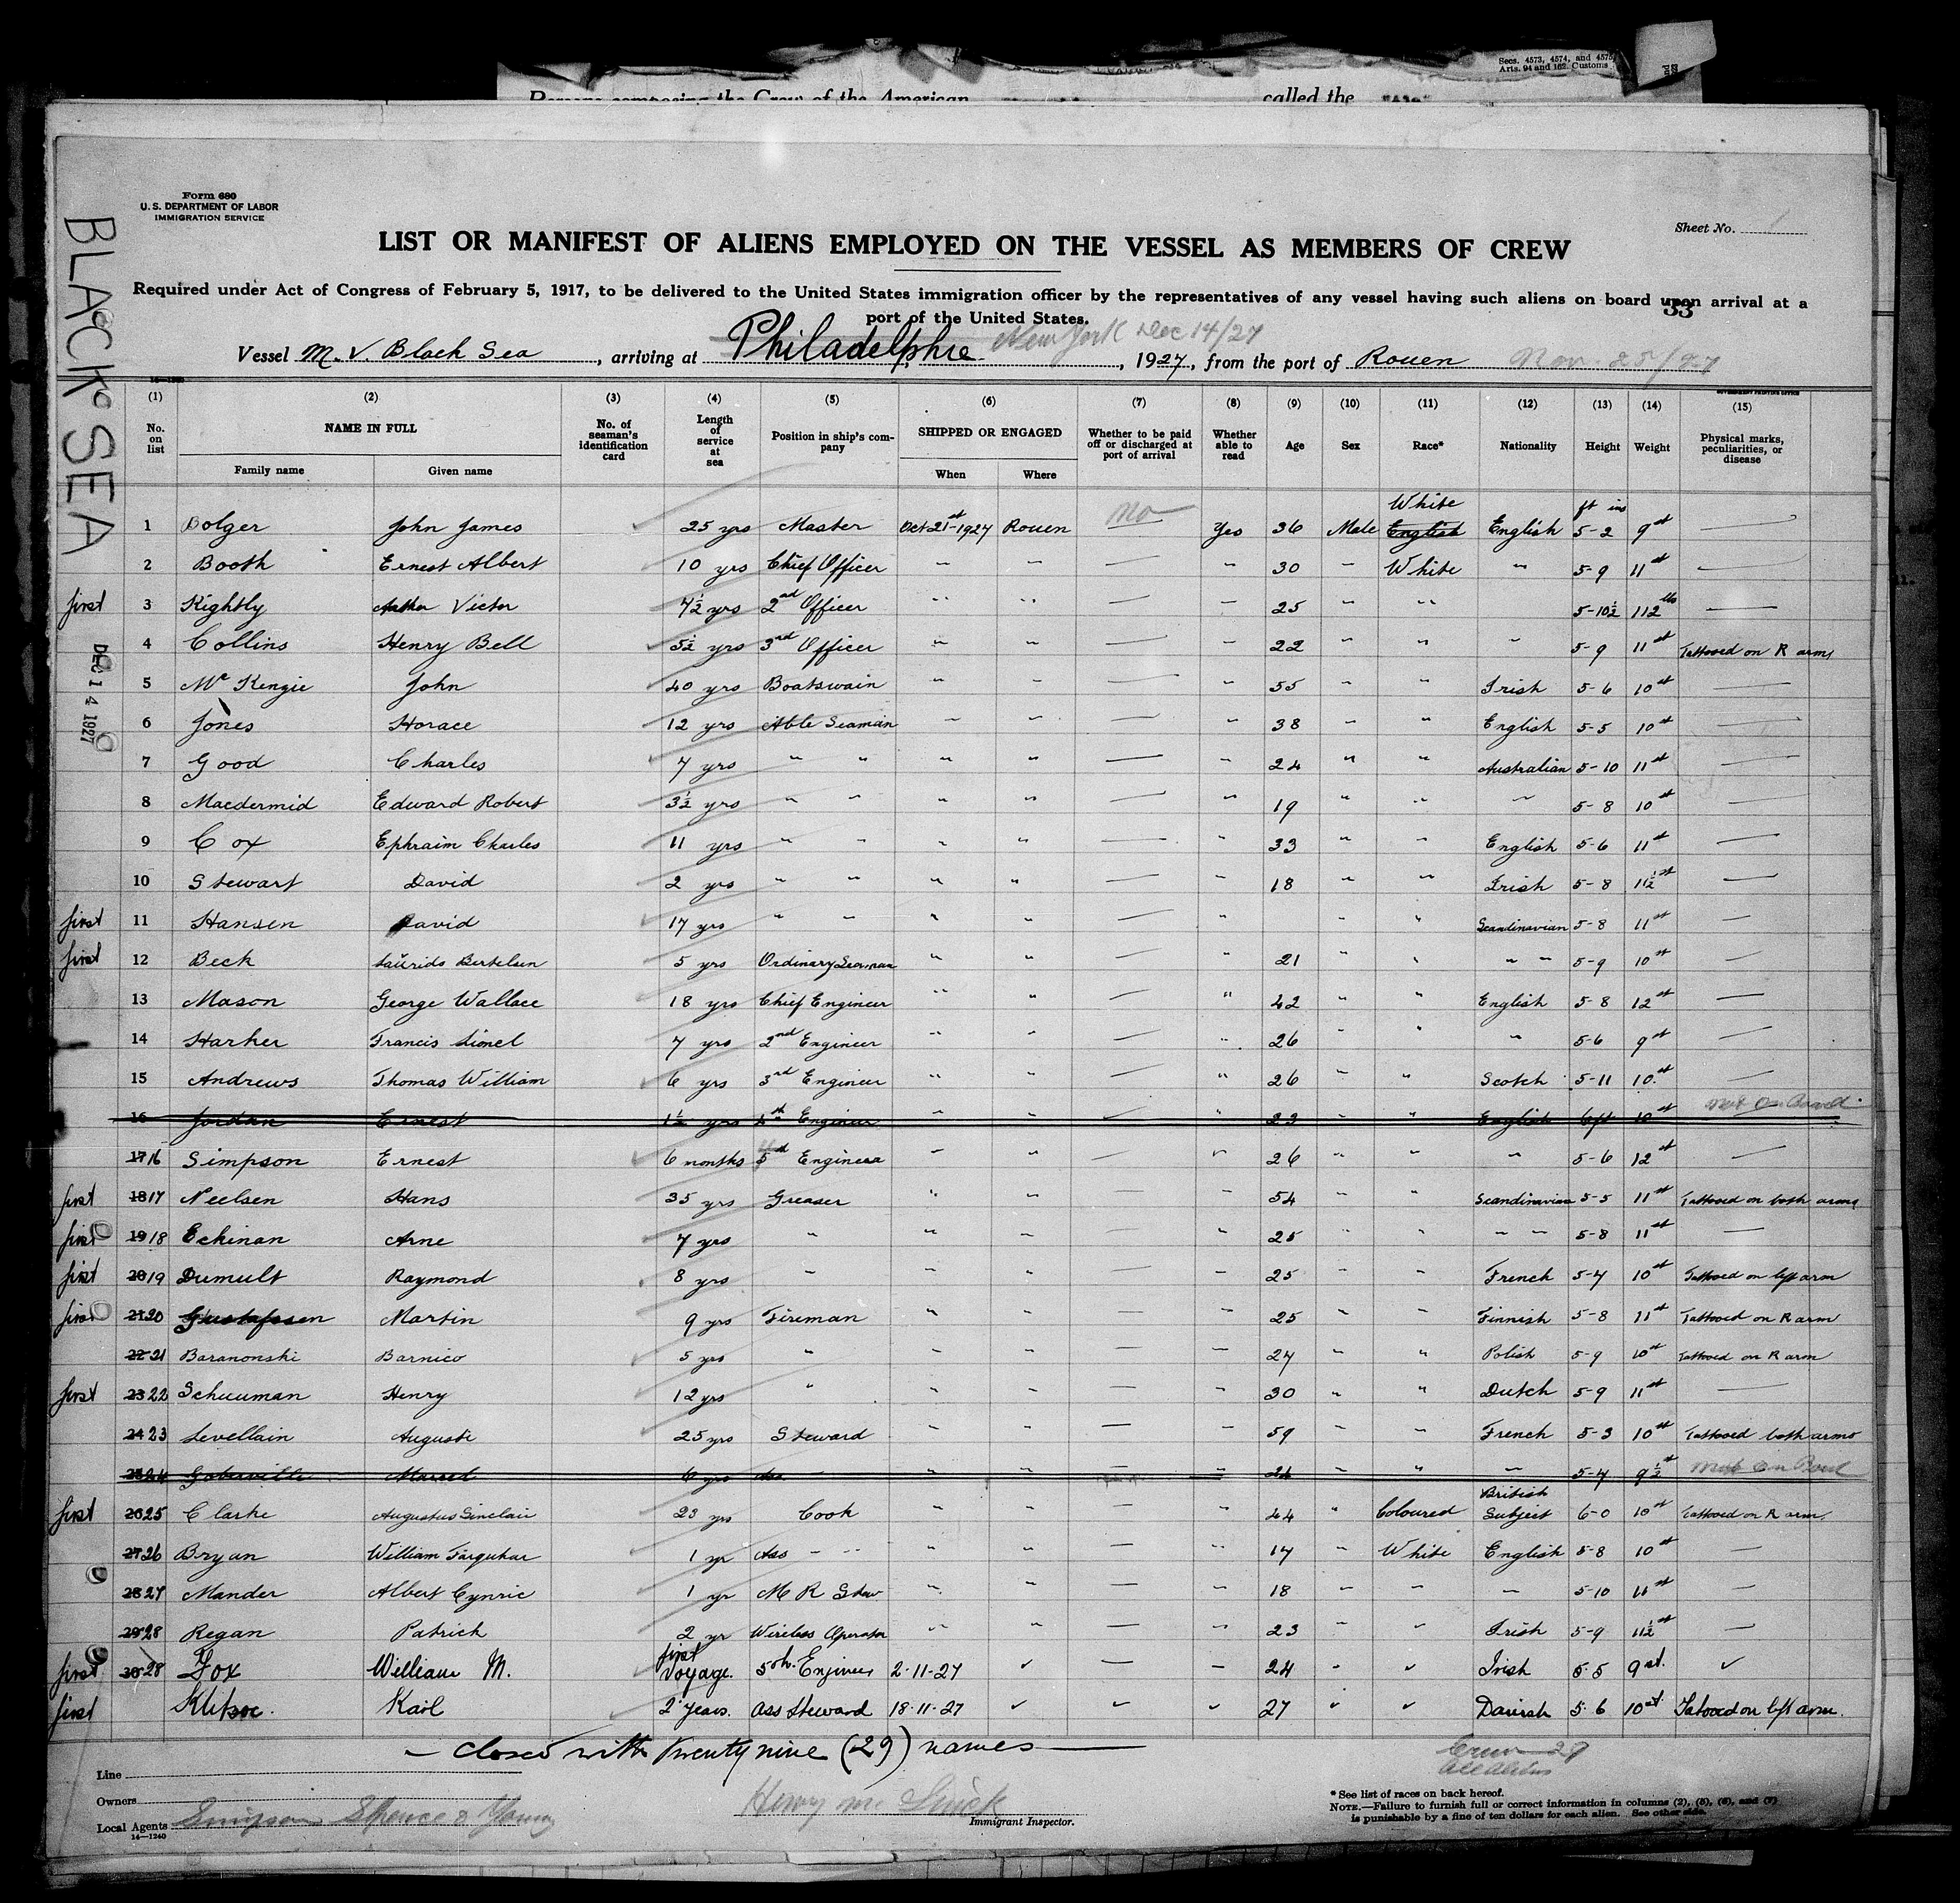 Secs. 4573, 4574, and 4575
Arts. 94 and 182. Customs
Persons composing the Crew of the American called the
Form 680
U. S. DEPARTMENT OF LABOR
IMMIGRATION SERVICE
BLACK SEA
DEC 14 1927
Sheet No. 1
LIST OR MANIFEST OF ALIENS EMPLOYED ON THE VESSEL AS MEMBERS OF CREW
Required under Act of Congress of February 5, 1917, to be delivered to the United States immigration officer by the representatives of any vessel having such aliens on board upon arrival at a
port of the United States.
33
New York Dec 14/27
Vessel M. V. Black Sea, arriving at Philadelphia, 1927, from the port of Rouen Nov. 25/27
(1) (2) (3) (4) (5) (6) (7) (8) (9) (10) (11) (12) (13) (14) (15)
No. on list NAME IN FULL Family name Given name No. of seaman's identification card Length of service at sea Position in ship's company SHIPPED OR ENGAGED When Where Whether to be paid off or discharged at port of arrival Whether able to read Age Sex Race* Nationality Height Weight Physical marks, peculiarities, or disease
GOVERNMENT PRINTING OFFICE
White ft ins
1 Bolger John James 25 yrs Master Oct 21st-1927 Rouen no Yes 36 Male English English 5-2 9st —
2 Booth Ernest Albert 10 yrs Chief Officer " " — " 30 " White " 5-9 11st —
first 3 Kightly Arthur Victor 7½ yrs 2nd Officer " " — " 25 " " 5-10½ 112 lbs —
4 Collins Henry Bell 5½ yrs 3rd Officer " " — " 22 " " " 5-9 11st Tattooed on R arm
5 McKenzie John 40 yrs Boatswain " " — " 55 " " Irish 5-6 10st —
6 Jones Horace 12 yrs Able Seaman " " — " 38 " " English 5-5 10st —
7 Good Charles 7 yrs " " " " — " 24 " " Australian 5-10 11st —
8 Macdermid Edward Robert 3½ yrs " " " " — " 19 " " " 5-8 10st —
9 Cox Ephraim Charles 11 yrs " " " " — " 33 " " English 5-6 11st —
10 Stewart David 2 yrs " " " " — " 18 " " Irish 5-8 11½st —
first 11 Hansen David 17 yrs " " " " — " " " Scandinavian 5-8 11st —
first 12 Beck Laurids Bertelsen 5 yrs Ordinary Seaman " " — " 21 " " " " 5-9 10st —
13 Mason George Wallace 18 yrs Chief Engineer " " — " 42 " " English 5-8 12st —
14 Harker Francis Lionel 7 yrs 2nd Engineer " " — " 26 " " " 5-6 9st —
15 Andrews Thomas William 6 yrs 3rd Engineer " " — " 26 " " Scotch 5-11 10st —
16 Jordan Ernest 1½ yrs 4th Engineer " " — " 23 " " English 6ft 10st Not On Board
17 16 Simpson Ernest 6 months Engineer " " — " 26 " " " 5-6 12st —
first 18 17 Neelsen Hans 35 yrs Greaser " " — " 54 " " Scandinavian 5-5 11st Tattooed on both arms
first 19 18 Echinan Arne 7 yrs " " " — " 25 " " " " 5-8 11st —
first 20 19 Dumult Raymond 8 yrs " " " — " 25 " " French 5-4 10st Tattooed on left arm
first 21 20 Gustafssen Martin 9 yrs Fireman " " — " 25 " " Finnish 5-8 11st Tattooed on R arm
22 21 Baranonski Barnico 5 yrs " " " — " 24 " " Polish 5-9 10st Tattooed on R arm
first 23 22 Schuuman Henry 12 yrs " " " — " 30 " " Dutch 5-9 11st —
24 23 Levellain Auguste 25 yrs Steward " " — " 59 " " French 5-3 10st Tattooed both arms
25 24 Goberville Marcel 6 yrs Ass " " — " 21 " " " 5-4 9½st Not On Board
first 26 25 Clarke Augustus Sinclair 23 yrs Cook " " — " 44 " Coloured British Subject 6-0 10st Tattooed on R arm
27 26 Bryan William Farquhar 1 yr Ass " " " — " 17 " White English 5-8 10st —
28 27 Mander Albert Cynric 1 yr M R Stew " " — " 18 " " " 5-10 11st —
29 28 Regan Patrick 2 yr Wireless Operator " " — " 23 " " Irish 5-9 11½st —
first 30 28 Fox William M. first voyage. 5th Engineer 2-11-27 " — " 24 " " Irish 5-5 9st. ✓
first Karl 2 years. Ass Steward 18-11-27 " " " 27 " " Danish 5 6 10st. Tatooed on left arm.
— closed with twenty nine (29) names —
Crew 29
All aliens
Line
Owners
Local Agents Simpson Spence & Young
14—1240
Immigrant Inspector.
* See list of races on back hereof.
NOTE.—Failure to furnish full or correct information in columns (2), (5), (6), and (7)
is punishable by a fine of ten dollars for each alien. See other side.